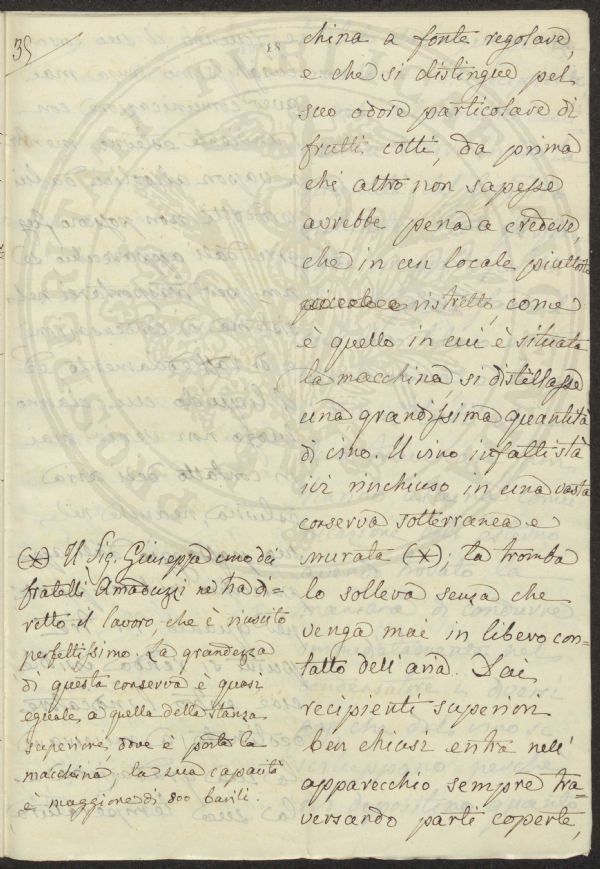 35
china a forte regolare,
e che si distingue pel
suo odore particolare di
frutti cotti, da prima
chi altro non sapesse
avrebbe pena a credere,
che in un locale piuttosto
ristretto, come
è quello in cui è situata
la macchina si distillasse
una grandissima quantità
di vino. Il vino infatti stà
ivi rinchiuso in una vasta
conserva sotterranea e
murata (*); la tromba
lo solleva senza che
venga mai in libero con-
tatto dell'aria. Dai
recipienti superiori
ben chiusi entra nell'
apparecchio, sempre tra-
versando parti coperte,
(*) Il Sig. Giuseppe uno dei
fratelli Amaduzzi ne ha di-
retto il lavoro, che è riuscito
perfettissimo. La grandezza
di questa conserva è quasi
eguale a quella della stanza
superiore, dove è posta la
macchina; la sua capacità
è maggiore di 800 barili.